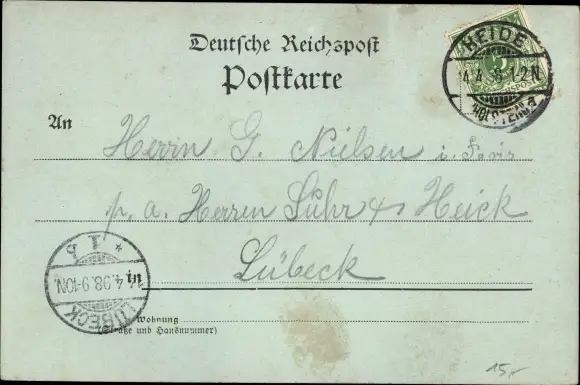 Deutsche Reichspost
Postkarte
HEIDE
4.4.98.1-2N.
HOLSTEIN a
An
Herrn G. Nielsen i. Firma
p. a. Herren Suhr & Heick
in
Lübeck
1 b
4.98.9-10N.
LÜBECK
Wohnung
(Straße und Hausnummer)
15,-